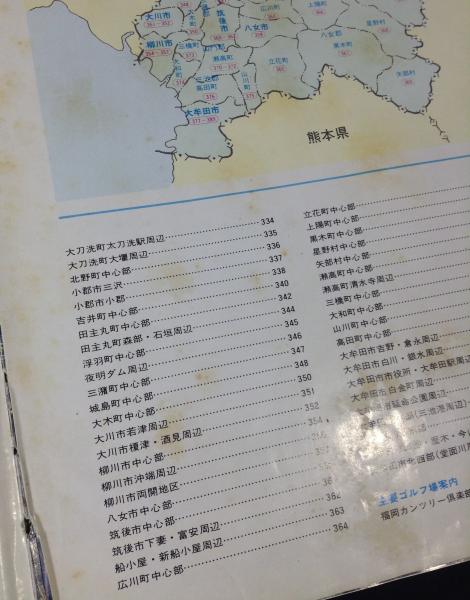 大川市
351・352
筑後市
広川町
364
上陽町
八女市
358
星野村
柳川市
354・357
三橋町
373
大和町
瀬高町
370・372
立花町
365
八女郡
黒木町
367
矢部村
369
高田町
376
山川町
375
大牟田市
377・389
熊本県
大刀洗町太刀洗駅周辺 334
大刀洗町大堰周辺 335
北野町中心部 336
小郡市三沢 337
小郡市小郡 338
吉井町中心部 340
田主丸町中心部 342
田主丸町森部・石垣周辺 344
浮羽町中心部 345
夜明ダム周辺 346
三潴町中心部 347
城島町中心部 348
大木町中心部 350
大川市若津周辺 351
大川市榎津・酒見周辺 352
柳川市中心部 354
柳川市沖端周辺
柳川市両開地区
八女市中心部
筑後市中心部
筑後市下妻・富安周辺 362
船小屋・新船小屋周辺 363
広川町中心部 364
立花町中心部
上陽町中心部
黒木町中心部
星野村中心部
矢部村中心部
瀬高町中心部
瀬高町清水寺周辺
三橋町中心部
大和町中心部
山川町中心部
高田町中心部
大牟田市吉野・倉永周辺
大牟田市白川・銀水周辺
大牟田市市役所・大牟田駅周辺
大牟田市白金町周辺
延命公園周辺
(三池港周辺)
主要ゴルフ場案内
福岡カンツリー倶楽部